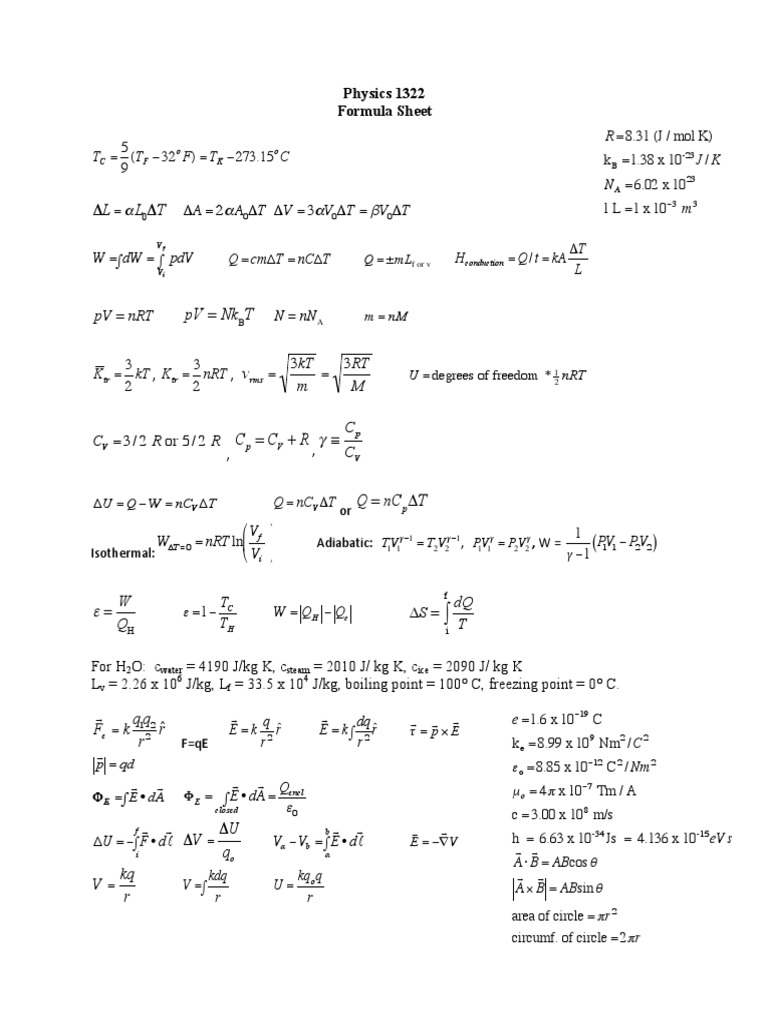 Physics 1322
Formula Sheet
T_C = 5/9 (T_F − 32° F) = T_K − 273.15° C
R =8.31 (J / mol K)
k_B =1.38 x 10^-23 J / K
N_A =6.02 x 10^23
1 L =1 x 10^−3 m^3
ΔL = αL_0ΔT ΔA = 2αA_0ΔT ΔV = 3αV_0ΔT = βV_0ΔT
W = ∫dW = ∫_Vi^Vf pdV Q = cmΔT = nCΔT Q = ±mL_f or v H_conduction = Q / t = kA ΔT/L
pV = nRT pV = Nk_BT N = nN_A m = nM
K̅_tr = 3/2 kT , K_tr = 3/2 nRT , v_rms = √(3kT/m) = √(3RT/M) U =degrees of freedom * 1/2 nRT
C_V =3/2 R or 5/2 R , C_p = C_V + R , γ ≡ C_p/C_V
ΔU = Q − W = nC_VΔT Q = nC_VΔT or Q = nC_pΔT
Isothermal: W_ΔT=0 = nRT ln(V_f/V_i) Adiabatic: T_1V_1^γ−1 = T_2V_2^γ−1 , P_1V_1^γ = P_2V_2^γ , W = 1/(γ−1) (P_1V_1 − P_2V_2)
ε = W/Q_H ε = 1 − T_C/T_H W = |Q_H| − |Q_c| ΔS = ∫_i^f dQ/T
For H_2O: c_water = 4190 J/kg K, c_steam = 2010 J/ kg K, c_ice = 2090 J/ kg K
L_v = 2.26 x 10^6 J/kg, L_f = 33.5 x 10^4 J/kg, boiling point = 100° C, freezing point = 0° C.
F⃗_e = k q_1q_2/r^2 r̂ F=qE E⃗ = k q/r^2 r̂ E⃗ = k∫ dq/r^2 r̂ τ⃗ = p⃗ × E⃗
|p⃗| = qd
Φ_E = ∫E⃗ • dA⃗ Φ_E = ∫_closed E⃗ • dA⃗ = Q_encl/ε_0
ΔU = −∫_i^f F⃗ • dl⃗ ΔV = ΔU/q_o V_a − V_b = ∫_a^b E⃗ • dl⃗ E⃗ = −∇⃗V
V = kq/r V = ∫ kdq/r U = kq_oq/r
e =1.6 x 10^−19 C
k_e =8.99 x 10^9 Nm^2 / C^2
ε_o =8.85 x 10^−12 C^2 / Nm^2
μ_o = 4π x 10^−7 Tm / A
c = 3.00 x 10^8 m/s
h = 6.63 x 10^-34 Js = 4.136 x 10^-15 eV s
A⃗ · B⃗ = AB cos θ
|A⃗ × B⃗| = AB sin θ
area of circle = πr^2
circumf. of circle =2πr